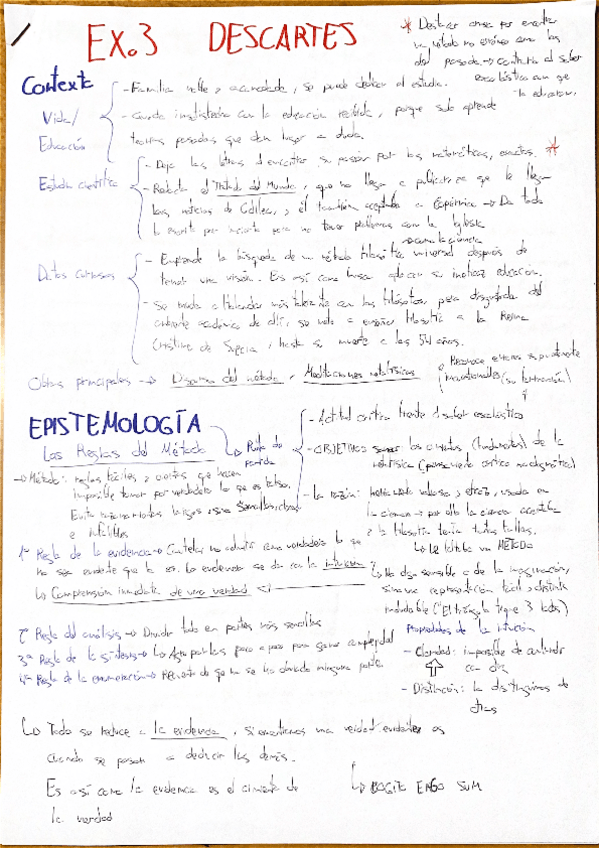 EX.3 DESCARTES
* Destacar ansia por encontrar
un método no erróneo como los
del pasado → contrario al saber
escolástico con que
le educaron.
Contexto
- Familia noble y acomodada, se puede dedicar al estudio.
Vida/
Educación
- Queda insatisfecho con la educación recibida, porque solo aprende
teorías pasadas que dan lugar a duda.
Estudio científico
- Deja las letras al encontrar su pasión por las matemáticas, exactas. *
- Redacta el Tratado del Mundo, que no llega a publicarse que le llegan
las noticias de Galileo, y él también aceptaba a Copérnico → Da todo
lo escrito por para no tener problemas con la Iglesia
como la ciencia
Datos curiosos
- Emprende la búsqueda de un método filosófico universal después de
tener una visión. Es así como busca aplacar su ineficaz educación.
- Se muda a Holanda más tolerante con los filósofos, pero disgustado del
ambiente académico de allí, se va a enseñar filosofía a la Reina
Cristina de Suecia, hasta su muerte a los 54 años.
Obras principales → Discurso del método, Meditaciones metafísicas
EPISTEMOLOGÍA
Las Reglas del Método
Punto de
partida
- Actitud crítica frente al saber escolástico
- OBJETIVO: los cimientos (fundamentos) de la
metafísica (pensamiento crítico no dogmático)
- La razón: herramienta valiosa y eficaz, usada en
la ciencia → por ello la ciencia acertaba
y la filosofía tenía tantos fallos.
↳ LE faltaba un MÉTODO
→ Método: reglas fáciles y ciertas que hacen
imposible tomar por verdadero lo que es falso.
Evita razonamientos largos,
e infalibles
1ª Regla de la evidencia → Cautela: no admitir como verdadero lo que
no sea evidente que lo es. La evidencia se da con la intuición
↳ Comprensión inmediata de una verdad
↳ No algo sensible o de la imaginación,
sino una representación fácil y distinta
indudable ("El triángulo tiene 3 lados)
2ª Regla del análisis → Dividir todo en partes más sencillas
3ª Regla de la síntesis → paso a paso para ganar complejidad
4ª Regla de la enumeración → Recuento de que no se ha obviado ninguna parte
Propiedades de la intuición
- Claridad: imposible de confundir
con otra
- Distinción: la distinguimos de
otras
↳ Todo se reduce a la evidencia, si encontramos una verdad evidente es
cuando se pasan a deducir las demás.
Es así como la evidencia es el cimiento de
la verdad
↳ COGITO ERGO SUM